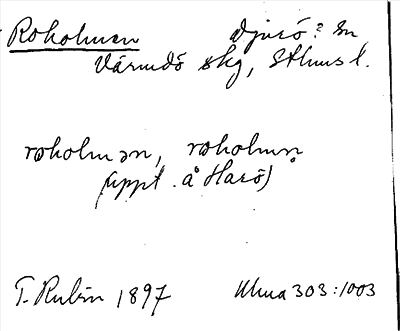 Roholmen Djurö? sn,
Värmdö skg, Sthms l.
roholmən, roholmn̥
(uppt. å Harö)
T. Rubin 1897 Ulma 303:1003